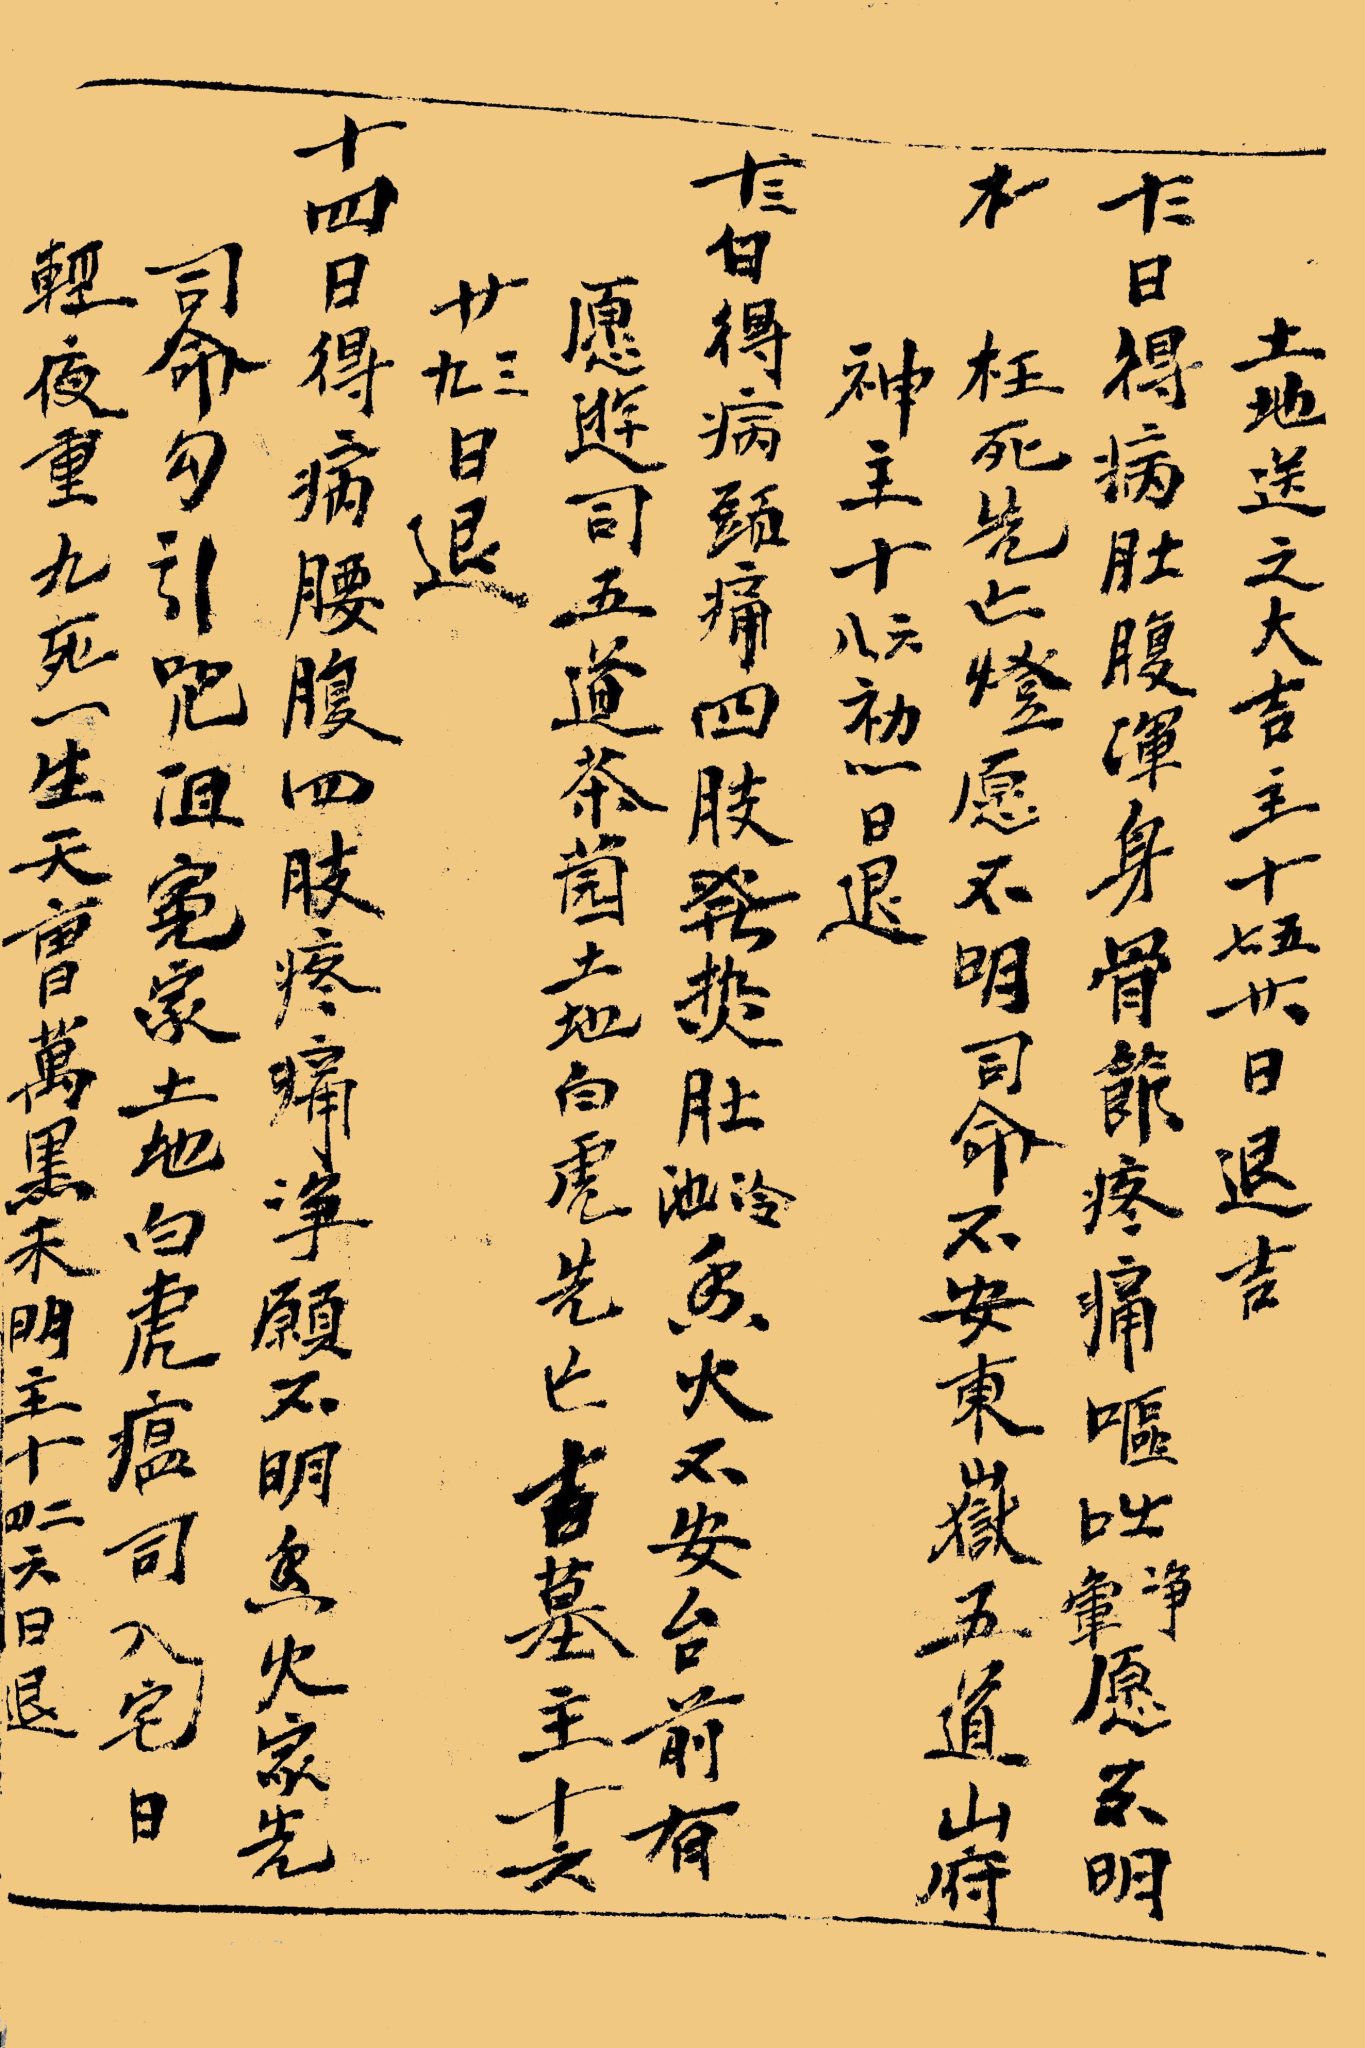 土地送之大吉主十五七廿六日退吉
十二日得病肚腹渾身骨節疼痛嘔吐淨暈愿不明
枉死先亡燈愿不明司命不安東嶽五道山府
神主十六八初一日退
十三日得病頭痛四肢發热肚冷池香火不安台前有
愿遊司五道茶园土地白虎先亡古墓主十六
廿三九日退
十四日得病腰腹四肢疼痛净願不明香火家先
司命勾引咒咀冤家土地白虎瘟司入宅日
輕夜重九死一生天曹萬黑未明主十二四六日退